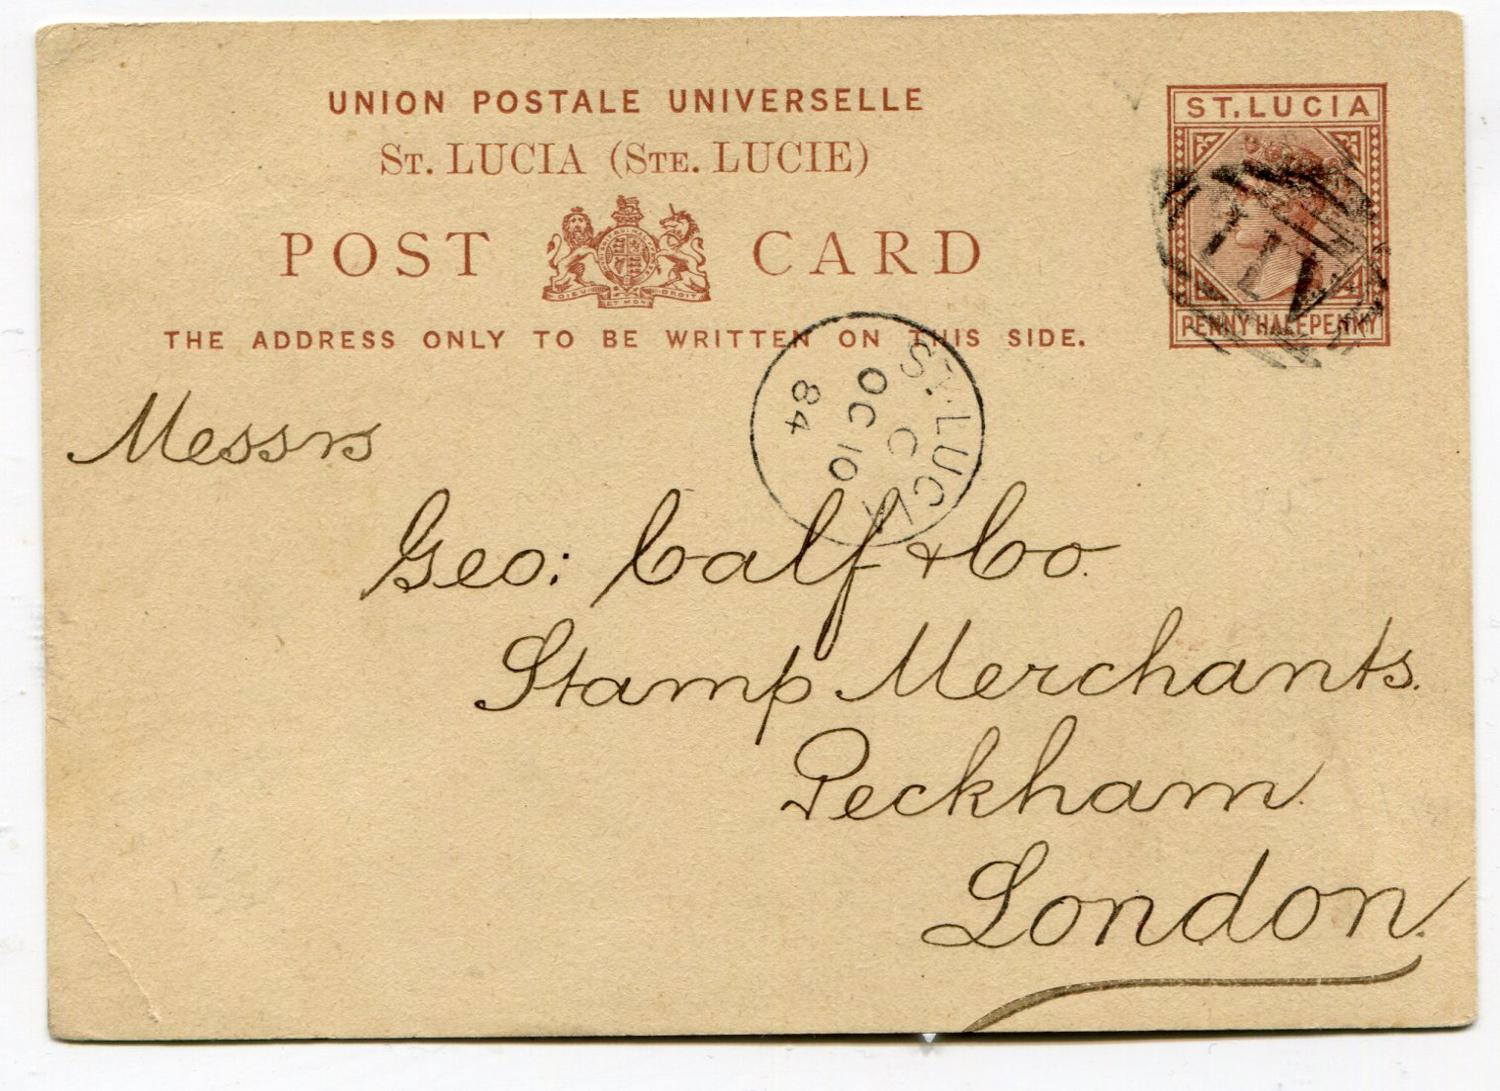 UNION POSTALE UNIVERSELLE
ST. LUCIA (STE. LUCIE)
POST CARD
DIEU ET MON DROIT
THE ADDRESS ONLY TO BE WRITTEN ON THIS SIDE.
ST. LUCIA
PENNY HALFPENNY
A11
ST. LUCIA
C
OC 10
84
Messrs
Geo: Calf & Co.
Stamp Merchants.
Peckham.
London.